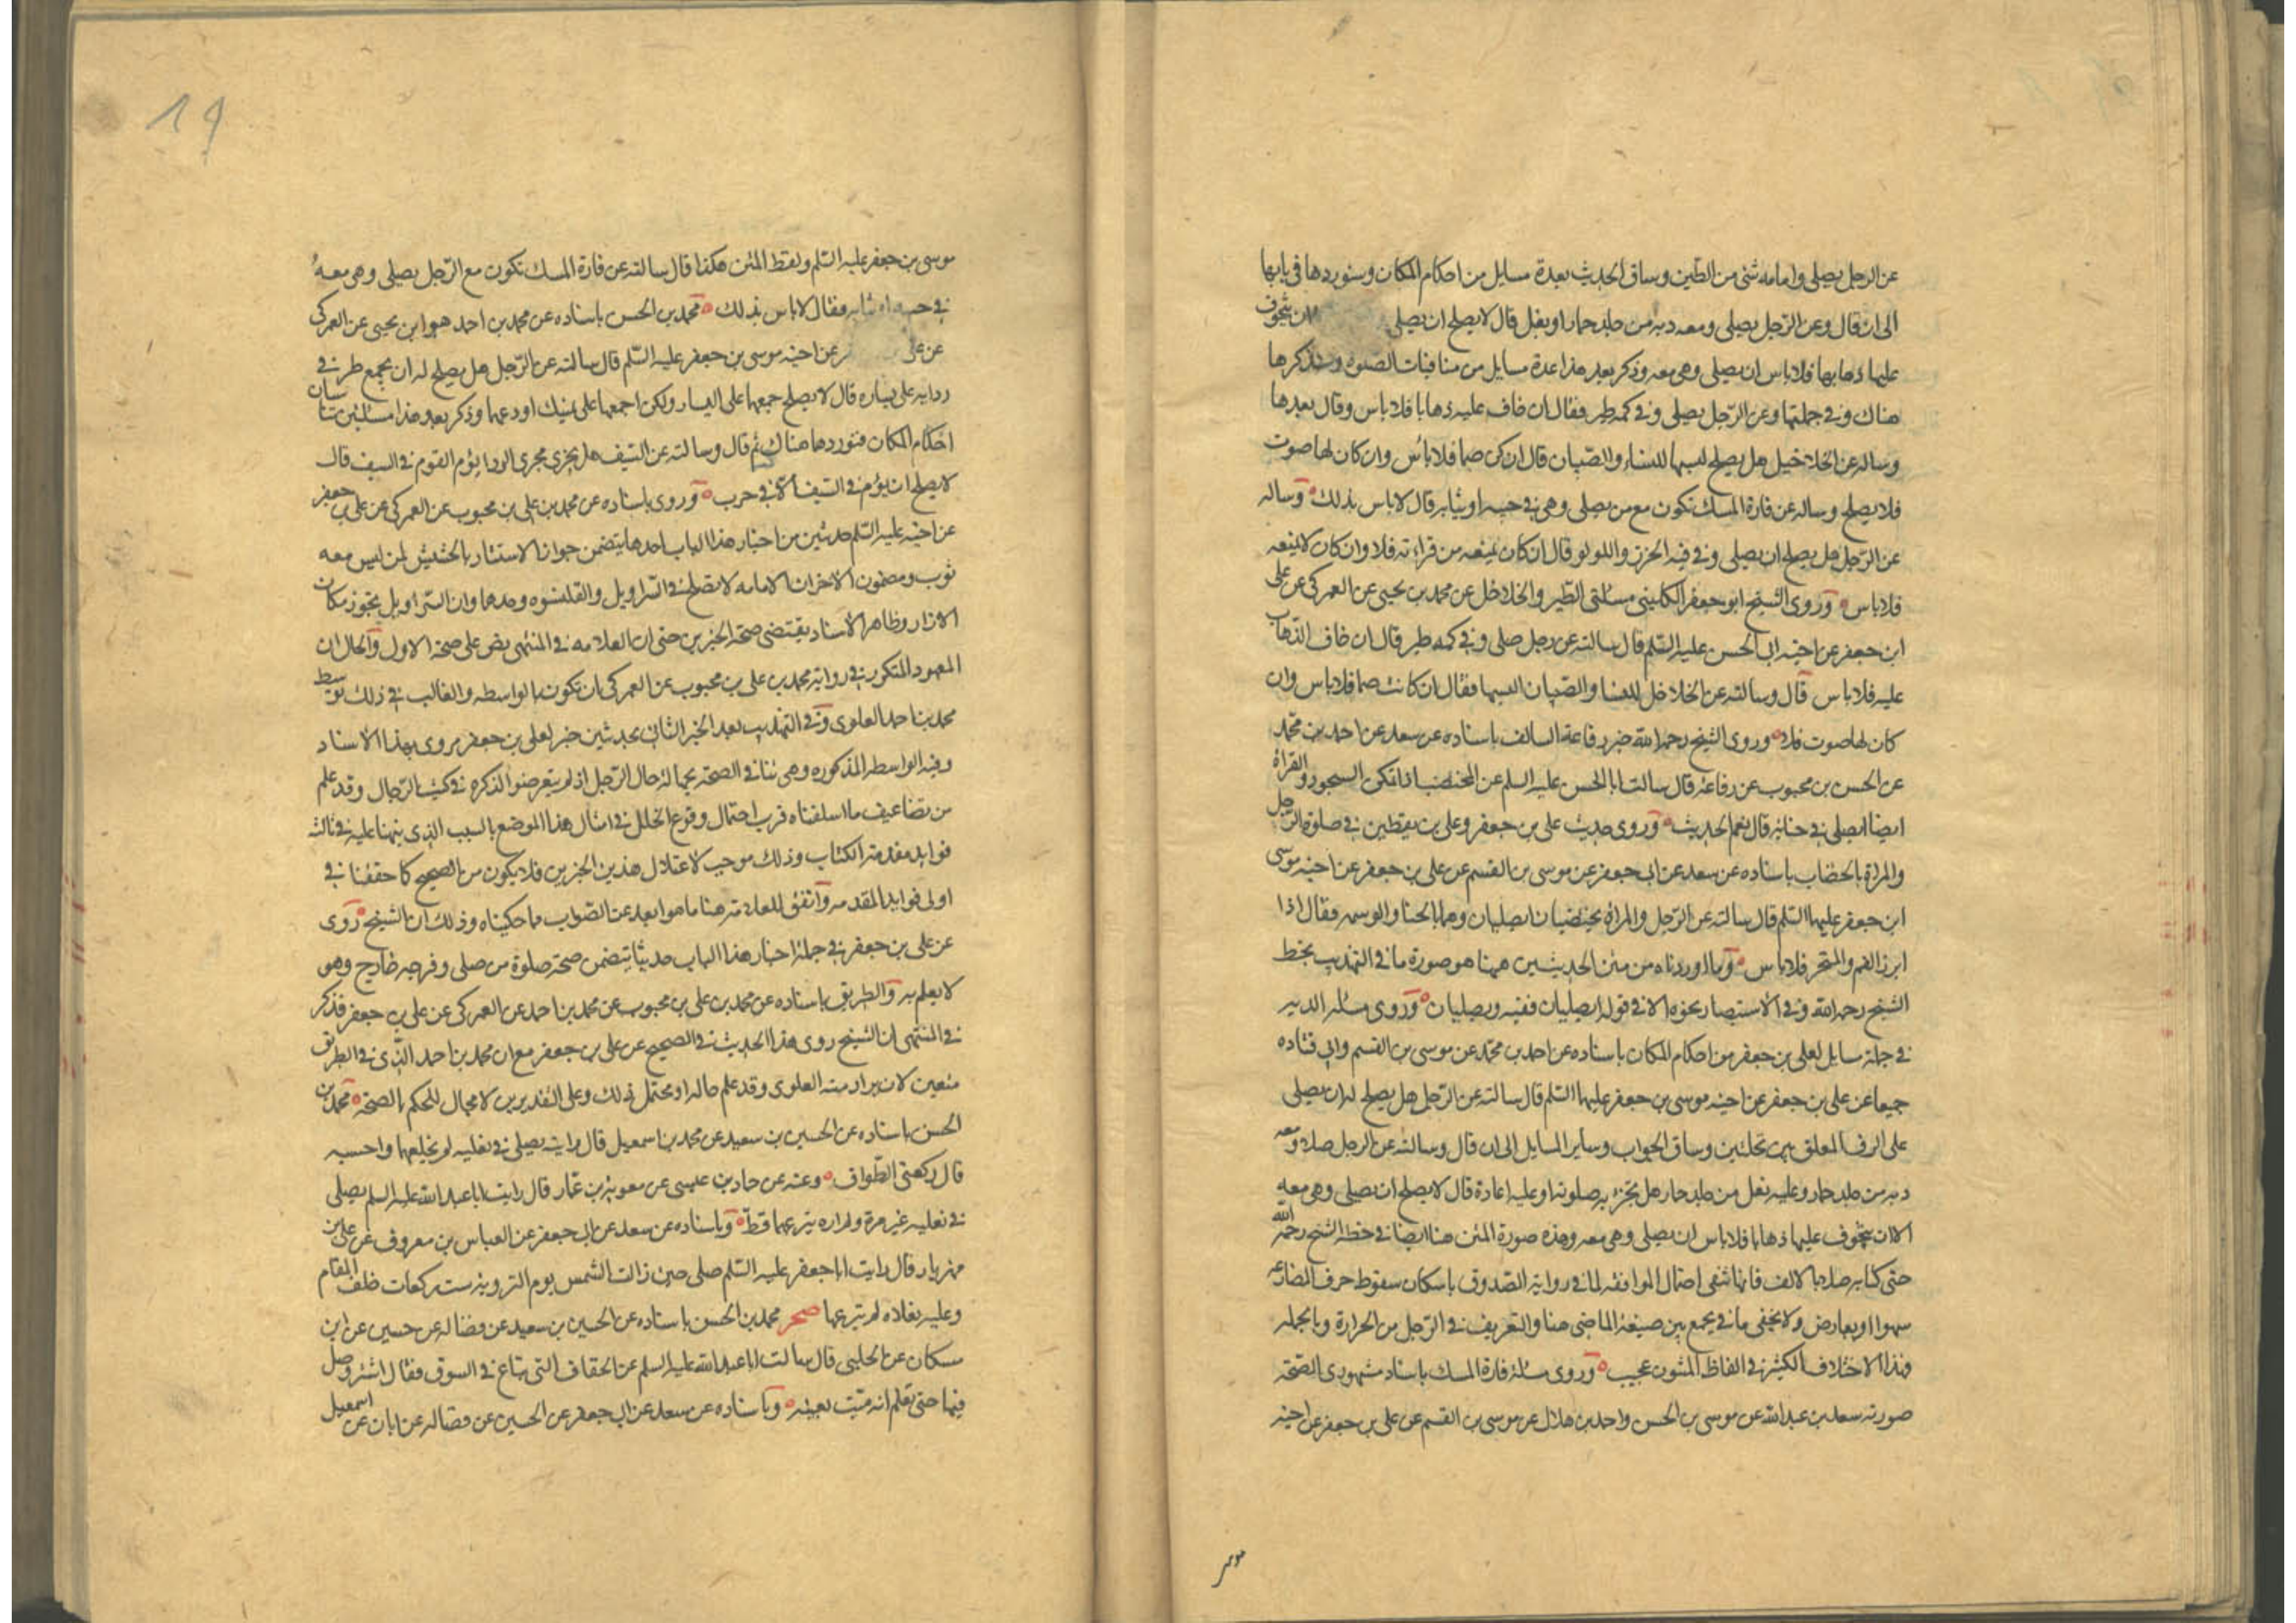 عن الرجل يصلى وامامه شئ من الطين وساق الحديث بعدة مسايل من احكام المكان وسنوردها فى بابها
الى ان قال وعن الرّجل يصلى ومعه دبه من جلد حمار او بغل قال لا يصلح ان يصلى ان يتخوف
عليها ذهابها فلا باس ان يصلى وهى معه وذكر بعد هذا عدة مسايل من منافيات الصلوه وسنذكرها
هناك وفى جملتها وعن الرّجل يصلى وفى كمه طير فقال ان خاف عليه ذهابا فلا باس وقال بعدها
وساله عن الخلاخيل هل يصلح لبسها للنساء والصّبيان قال ان كن صما فلا باس وان كان لها صوت
فلا يصلح وساله عن فارة المسك تكون مع من يصلى وهى فى جيبه او ثيابه قال لا باس بذلك وساله
عن الرّجل هل يصلح ان يصلى وفى فيه الخرز واللولو قال ان كان يمنعه من قراءته فلا وان كان لا يمنعه
فلا باس وروى الشيخ ابو جعفر الكلينى مسالتى الطير والخلاخل عن محمد بن يحيى عن العمركى عن على
ابن جعفر عن اخيه ابى الحسن عليه السّلم قال سالته عن رجل صلى وفى كمه طير قال ان خاف الذهاب
عليه فلا باس قال وسالته عن الخلاخل للنسا والصّبيان البسها فقال ان كانت صما فلا باس وان
كان لها صوت فلا وروى الشيخ رحمه الله خبر رفاعة السالف باسناده عن سعد عن احمد بن محمّد
عن الحسن بن محبوب عن رفاعة قال سالت ابا الحسن عليه السلم عن المختضب اذا تمكن السجود والقراة
ايضا ايصلى فى حنائه قال نعم الحديث وروى حديث على بن جعفر وعلى بن يقطين فى صلوة الرجل
والمراة بالخضاب باسناده عن سعد عن ابى جعفر عن موسى بن القسم عن على بن جعفر عن اخيه موسى
ابن جعفر عليهما السّلم قال سالته عن الرّجل والمراة يختضبان ايصليان وهما بالحنا والوسمه فقال اذا
ابرز الفم والمنخر فلا باس وما اوردناه من متن الحديثين هيهنا هو صورة ما فى التهذيب بخط
الشيخ رحمه الله وفى الاستبصار نحوه الا فى قوله ايصليان ففيه ويصليان وروى مساله الدبه
فى جملة مسايل لعلى بن جعفر من احكام المكان باسناده عن احمد بن محمّد عن موسى بن القسم وابى قتاده
جميعا عن على بن جعفر عن اخيه موسى بن جعفر عليهما السّلم قال سالته عن الرّجل هل يصلح له ان يصلى
على الرف المعلق بين نخلتين وساق الجواب وساير المسايل الى ان قال وسالته عن الرجل صلا ومعه
دبه من جلد حمار وعليه نعل من جلد حمار هل يجزيه صلوته او عليه اعادة قال لا يصلح ان يصلى وهى معه
الا ان يتخوف عليها ذهابا فلا باس ان يصلى وهى معه وهذه صورة المتن هنا ايضا فى خط الشيخ رحمه الله
حتى كتابه صلا بالالف فانها تنفى احتمال الموافقه لما فى رواية الصدوق باسكان سقوط حرف المضارعه
سهوا او يعارض ولا يخفى ما فى الجمع بين صيغة الماضى هنا والتعريف فى الرّجل من الحزازة وبالجمله
فهذا الاختلاف الكثير فى الفاظ المتون عجيب وروى مسئلة فارة المسك باسناد مشهورى الصّحّة
صورته سعد بن عبد الله عن موسى بن الحسن واحمد بن هلال عن موسى بن القسم عن على بن جعفر عن اخيه
موسى
19
موسى بن جعفر عليه السّلم ولفظ المتن هكذا قال سالته عن فارة المسك تكون مع الرّجل يصلى وهى معه
فى جيبه او ثيابه فقال لا باس بذلك محمّد بن الحسن باسناده عن محمد بن احمد هو ابن يحيى عن العمركى
عن على عن اخيه موسى بن جعفر عليه السّلم قال سالته عن الرّجل هل يصلح له ان يجمع طرفى
ردايه على يساره قال لا يصلح جمعهما على اليسار ولكن اجمعهما على يمينك او دعهما وذكر بعد هذا مسئلتين تناسبان
احكام المكان فنوردها هناك ثم قال وسالته عن السّيف هل يجزى مجرى الرداء يؤم القوم فى السيف قال
لا يصلح ان يؤم فى السّيف الّا فى حرب وروى باسناده عن محمد بن على بن محبوب عن العمركى عن على بن جعفر
عن اخيه عليه السّلم حديثين من اخبار هذا الباب احدهما يتضمن جواز الاستتار بالحشيش لمن ليس معه
ثوب ومضمون الاخر ان الامامه لا تصلح فى السّراويل والقلنسوه وحدهما وان السّراويل يجوز مكان
الازار وظاهر الاسناد يقتضى صحّة الخبرين حتى ان العلامه فى المنتهى نص على صحّة الاول والحال ان
المعهود المتكرر فى رواية محمد بن على بن محبوب عن العمركى ان تكون بالواسطه والغالب فى ذلك توسط
محمد بن احمد العلوى وفى التهذيب بعد الخبر الثانى بحديثين خبر لعلى بن جعفر مروى بهذا الاسناد
وفيه الواسطه المذكوره وهى تنافى الصحّة بجهالة حال الرّجل اذ لم يتعرضوا لذكره فى كتب الرّجال وقد علم
من تضاعيف ما اسلفناه قرب احتمال وقوع الخلل فى امثال هذا الموضع بالسبب الذى نبهنا عليه فى ثالثه
فوايد مقدمة الكتاب وذلك موجب لاعتلال هذين الخبرين فلا يكون من الصحيح كما حققنا فى
اولى فوايد المقدمه واتفق للعلامة هنا ما هو ابعد عن الصّواب مما حكيناه وذلك ان الشيخ روى
عن على بن جعفر فى جملة اخبار هذا الباب حديثا يتضمن صحّة صلوة من صلى وفرجه خارج وهو
لا يعلم به والطريق باسناده عن محمد بن على بن محبوب عن محمد بن احمد عن العمركى عن على بن جعفر فذكر
فى المنتهى ان الشيخ روى هذا الحديث فى الصحيح عن على بن جعفر مع ان محمد بن احمد الّذى فى الطريق
متعين لان يراد منه العلوى وقد علم حاله او محتمل لذلك وعلى التقديرين لا مجال للحكم بالصحّة محمّد بن
الحسن باسناده عن الحسين بن سعيد عن محمد بن اسمعيل قال رايته يصلى فى نعليه لم يخلعهما واحسبه
قال ركعتى الطّواف وعنه عن حماد بن عيسى عن معوية بن عمّار قال رايت ابا عبد الله عليه السلم يصلى
فى نعليه غير مرة ولم اره ينزعهما قطّ وباسناده عن سعد عن ابى جعفر عن العباس بن معروف عن على بن
مهزيار قال رايت ابا جعفر عليه السّلم صلى حين زالت الشمس يوم التروية ست ركعات خلف المقام
وعليه نعلاه لم ينزعهما صحر محمد بن الحسن باسناده عن الحسين بن سعيد عن فضاله عن حسين عن ابن
مسكان عن الحلبى قال سالت ابا عبد الله عليه السلم عن الخفاف التى تباع فى السوق فقال اشتر وصل
فيها حتى تعلم انه ميّت بعينه وباسناده عن سعد عن ابى جعفر عن الحسين عن فضاله عن ابان عن اسمعيل